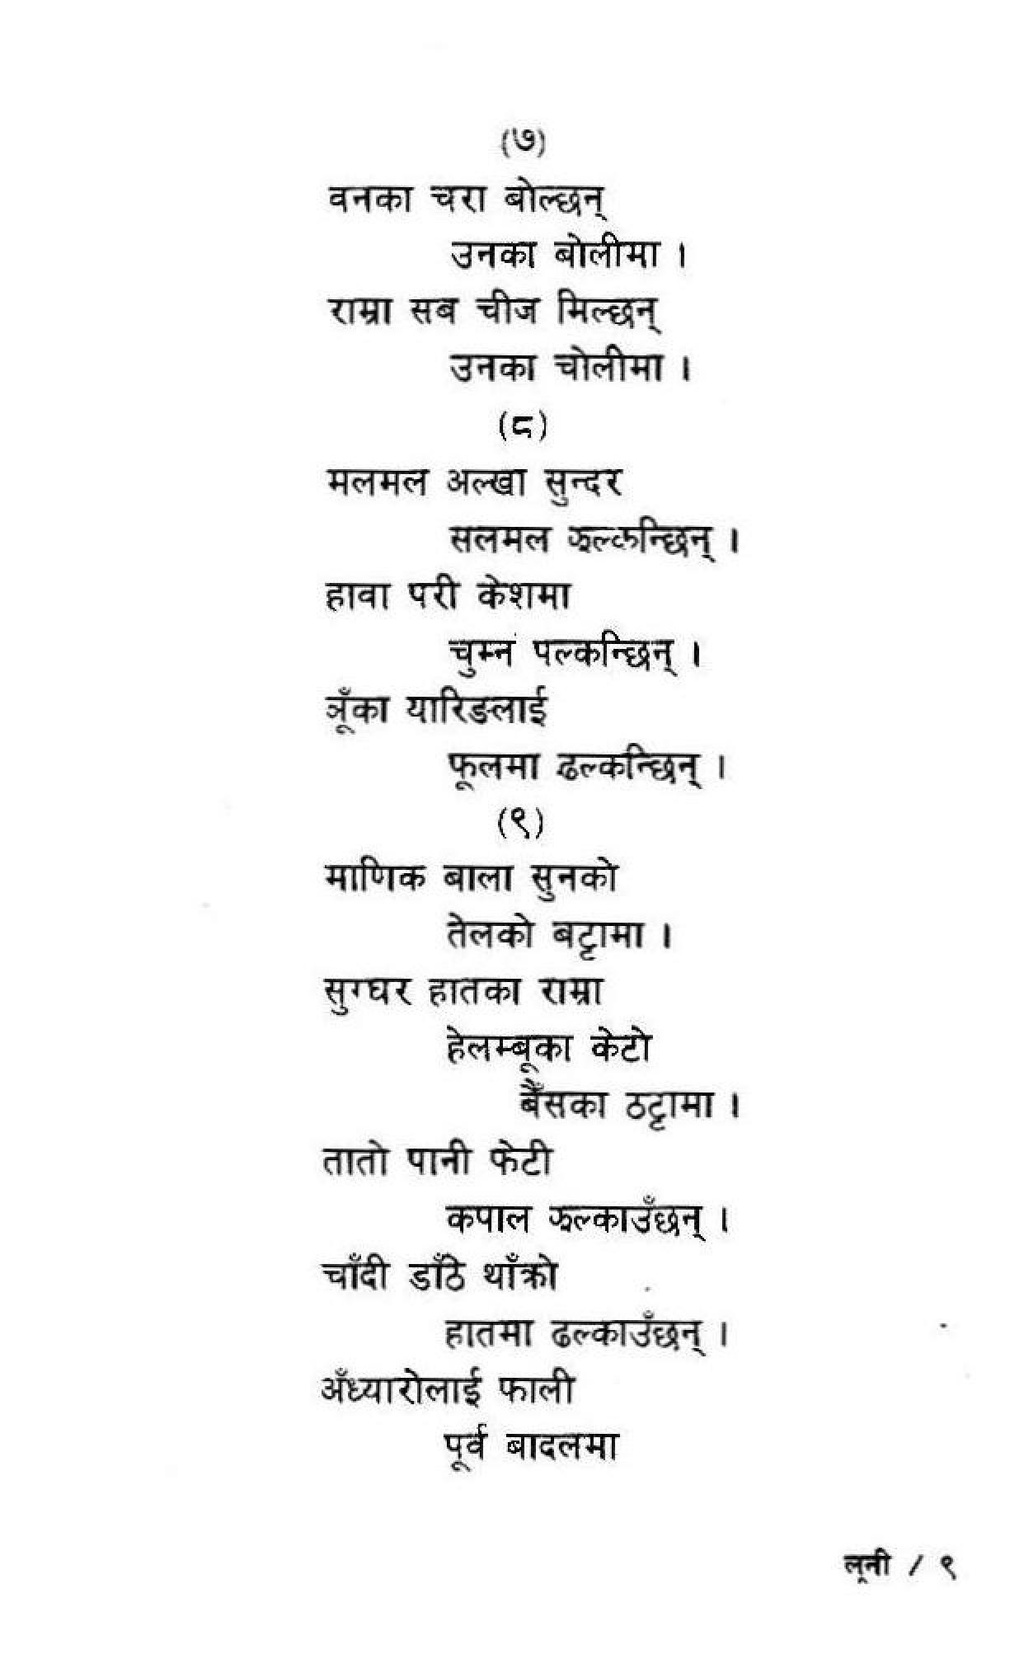 (७)
वनका चरा बोल्छन्
उनका बोलीमा ।
राम्रा सब चीज मिल्छन्
उनका चोलीमा ।
(८)
मलमल अल्खा सुन्दर
सलमल झल्कन्छिन् ।
हावा परी केशमा
चुम्न पल्कन्छिन् ।
ञूँका यारिङलाई
फूलमा ढल्कन्छिन् ।
(९)
माणिक बाला सुनको
तेलको बट्टामा ।
सुग्घर हातका राम्रा
हेलम्बूका केटो
बैँसका ठट्टामा ।
तातो पानी फेटी
कपाल झल्काउँछन् ।
चाँदी डाँठे थाँक्रो
हातमा ढल्काउँछन् ।
अँध्यारोलाई फाली
पूर्व बादलमा
लूनी / ९